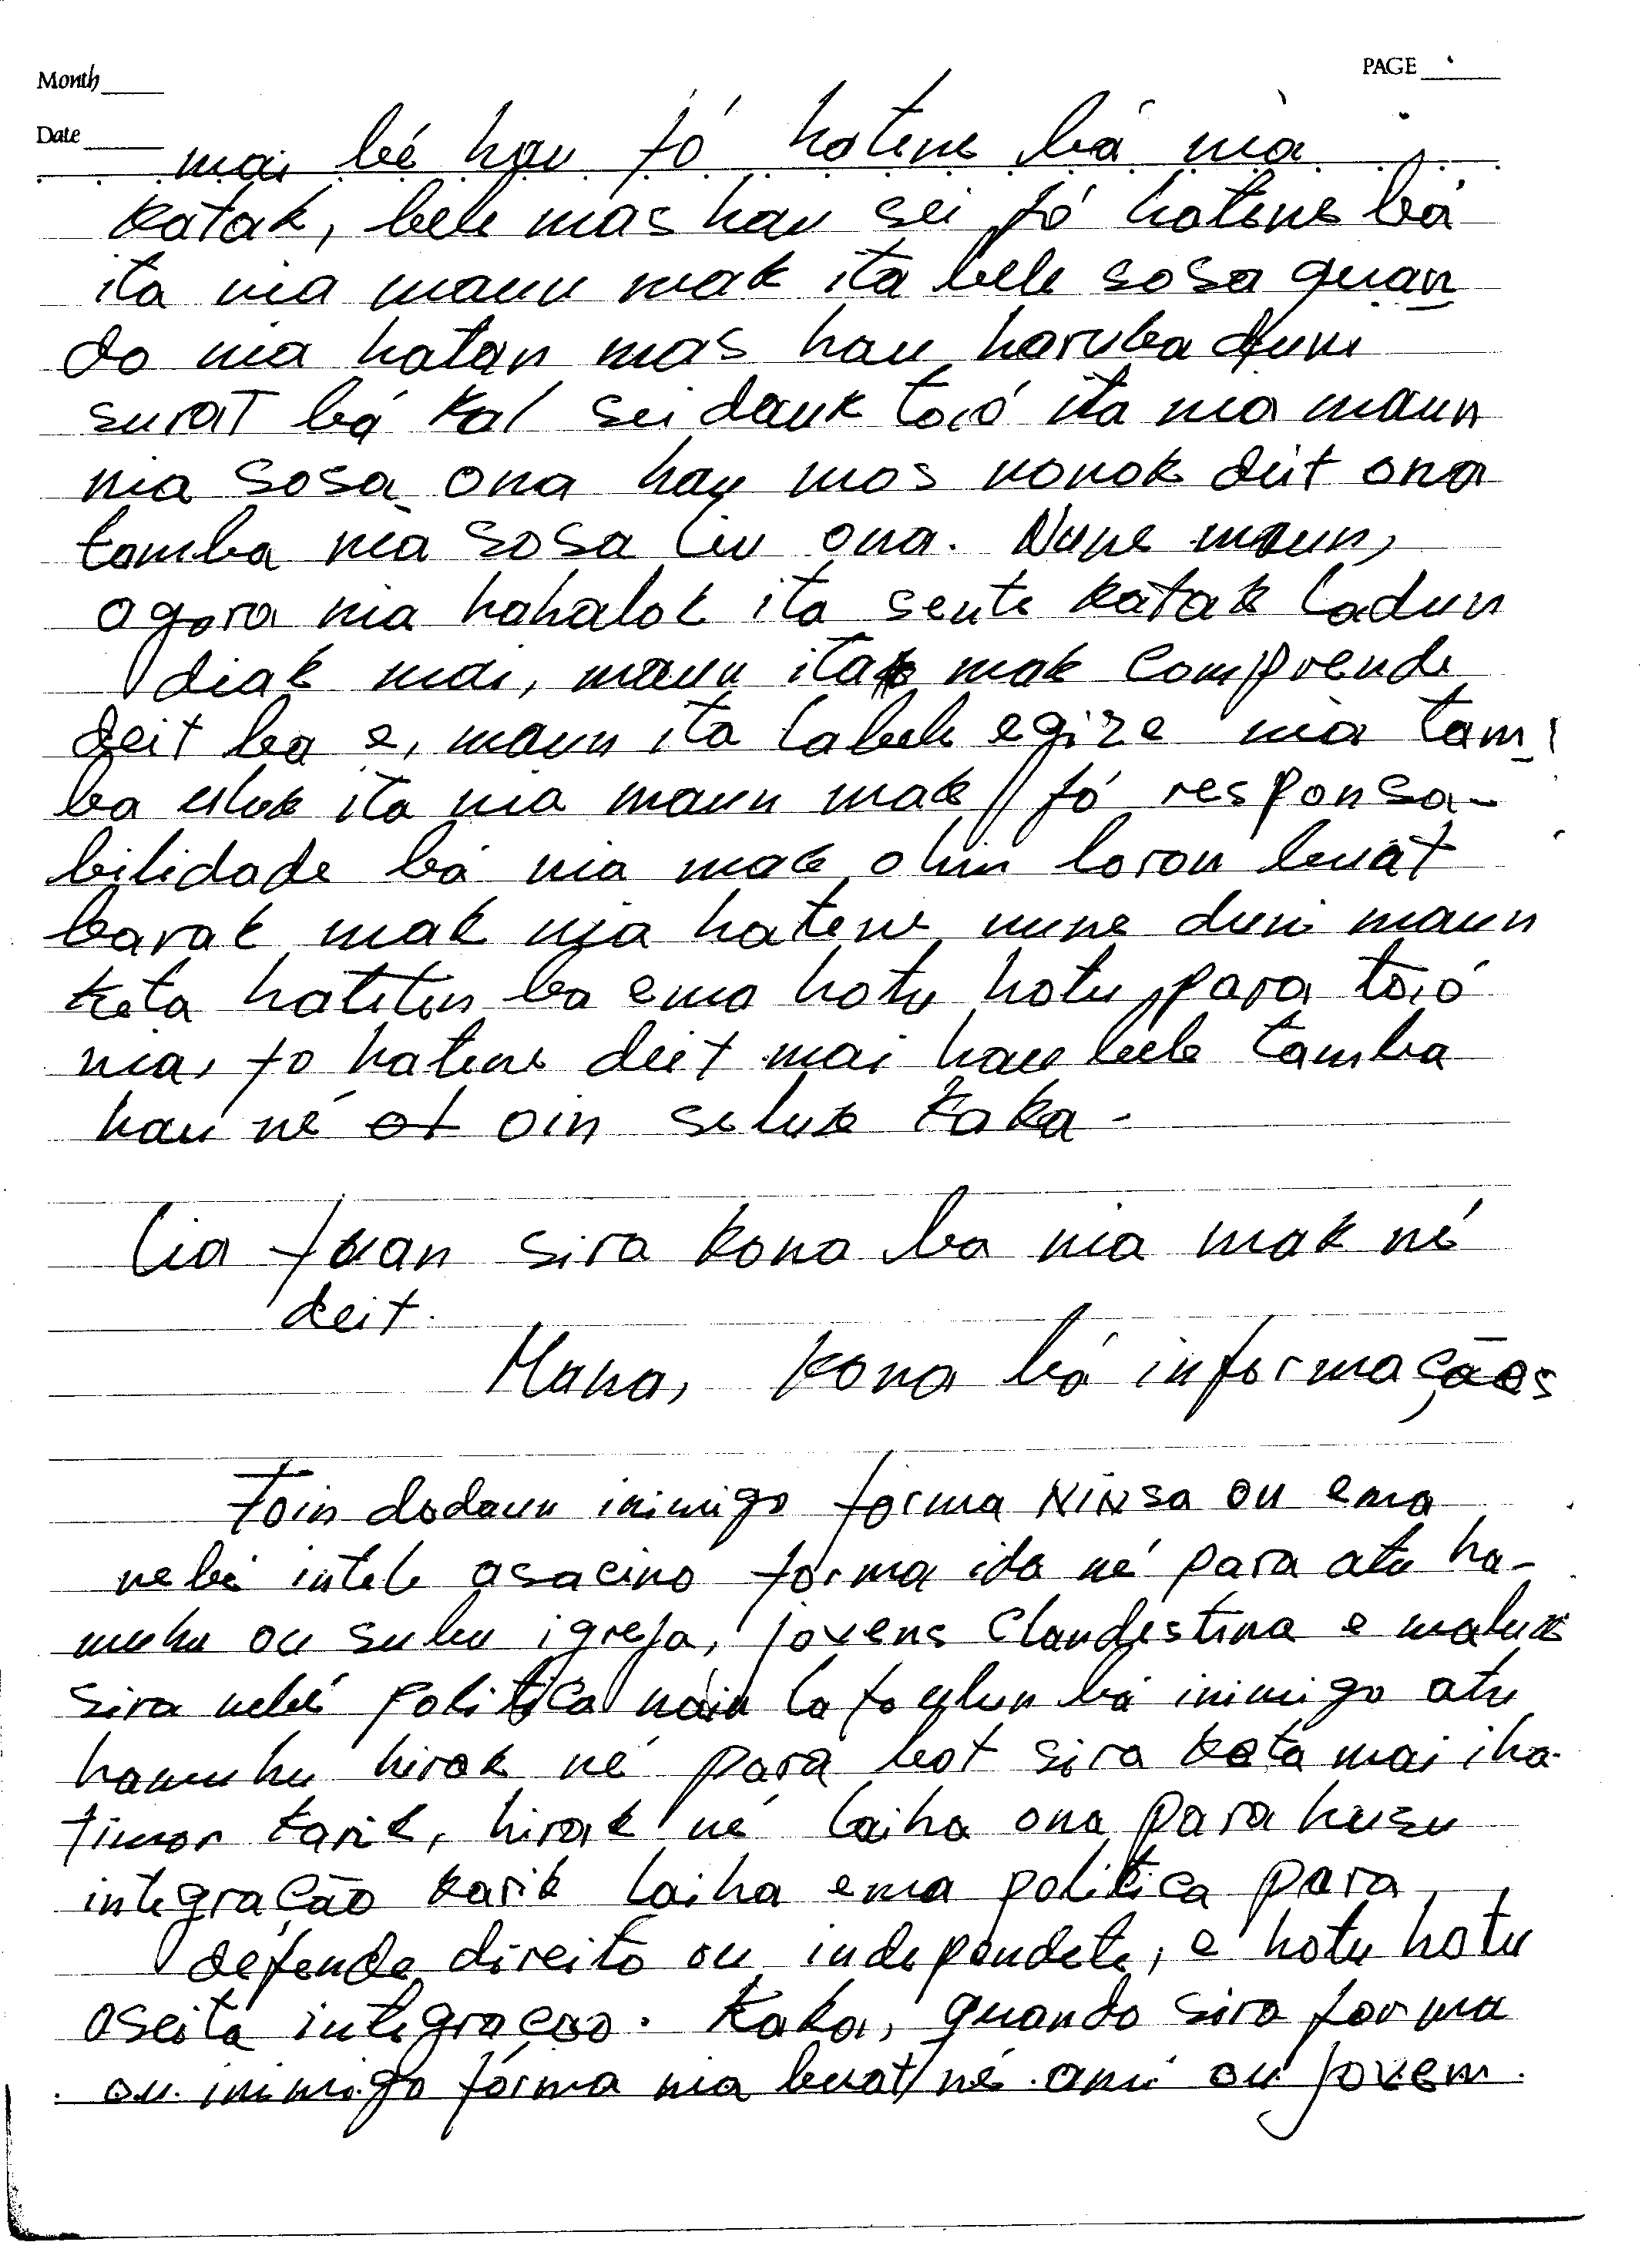 Month
PAGE
Date
mai bé hau fó hatene bá nia
katak, bele mas hau sei fó hatene bá
ita nia maun mak ita bele sosa quan
do nia hatan mas hau haruka duni
surat bá kal seidauk toió ita nia maun
nia sosa ona hau mos nonok deit ona
tamba nia sosa liu ona. Nune maun,
agora nia hahalok ita sente katak ladun
diak mai, maun ita mak comprende
deit ba e, maun ita labele egize nia tam
ba uluk ita nia maun mak fó responsa-
bilidade bá nia mak ohin loron buat
barak mak nia hatene nune duni maun
keta hateten ba ema hotu hotu, para toió
nia, fo hatene deit mai hau bele tamba
hau né ot oin seluk kaka.
Lia fuan sira kona ba nia mak né
deit.
Mana, kona bá informaçãoes
Foin dadaun inimigo forma NINSA ou ema
nebé intele asacino forma ida né para atu ha-
muhu ou subu igreja, jovens Clandestina e maluk
sira nebé politica náin la fo ulun bá inimigo atu
hamuhu hirak né para bot sira keta mai iha
timor karik, hirak né laiha ona para husu
integração karik laiha ema politica para
defende direito ou independete, e hotu hotu
aseita integraçao. Kaka, quando sira forma
ou inimigo fórma nia buat né ami ou jovem